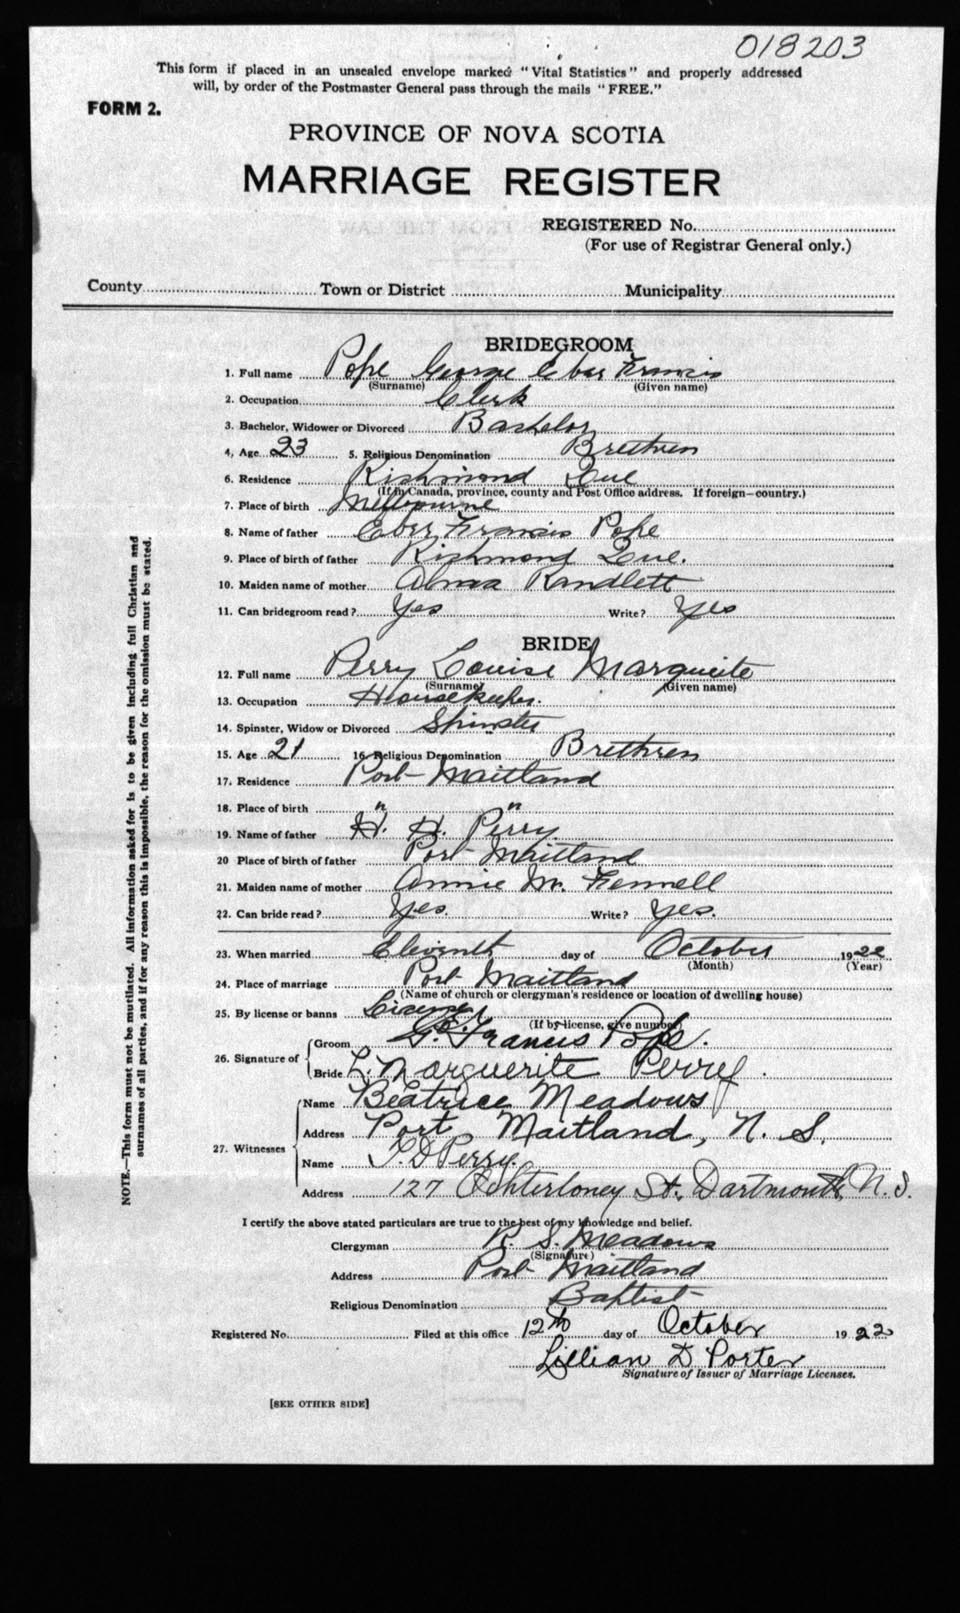 018203
This form if placed in an unsealed envelope marked "Vital Statistics" and properly addressed
will, by order of the Postmaster General pass through the mails "FREE."
FORM 2.
PROVINCE OF NOVA SCOTIA
MARRIAGE REGISTER
REGISTERED No.
(For use of Registrar General only.)
County Town or District Municipality
BRIDEGROOM
1. Full name Pope George Eber Francis
(Surname) (Given name)
2. Occupation Clerk
3. Bachelor, Widower or Divorced Bachelor
4. Age 23 5. Religious Denomination Brethren
6. Residence Richmond Que
(If in Canada, province, county and Post Office address. If foreign—country.)
7. Place of birth Melbourne
8. Name of father Eber Francis Pope
9. Place of birth of father Richmond Que.
10. Maiden name of mother Randlett
11. Can bridegroom read? Yes Write? Yes
BRIDE
12. Full name Perry Louise Marguerite
(Surname) (Given name)
13. Occupation Housekeeper.
14. Spinster, Widow or Divorced Spinster
15. Age 21 16. Religious Denomination Brethren
17. Residence Port Maitland
18. Place of birth " "
19. Name of father H. H. Perry
20 Place of birth of father Port Maitland
21. Maiden name of mother Annie M. Fennell
22. Can bride read? Yes. Write? Yes.
23. When married Eleventh day of October 1922
(Month) (Year)
24. Place of marriage Port Maitland
(Name of church or clergyman's residence or location of dwelling house)
25. By license or banns License
(If by license, give number)
26. Signature of Groom G. Francis Pope.
Bride L. Marguerite Perry.
27. Witnesses Name Beatrice Meadows
Address Port Maitland, N. S.
Name Perry.
Address 127 Ochterloney St., Dartmouth, N. S.
I certify the above stated particulars are true to the best of my knowledge and belief.
Clergyman R. S. Meadows
(Signature)
Address Port Maitland
Religious Denomination Baptist
Registered No. Filed at this office 12th day of October 1922
Lillian D Porter
Signature of Issuer of Marriage Licenses.
[SEE OTHER SIDE]
NOTE.—This form must not be mutilated. All information asked for is to be given including full Christian and
surnames of all parties, and if for any reason this is impossible, the reason for the omission must be stated.